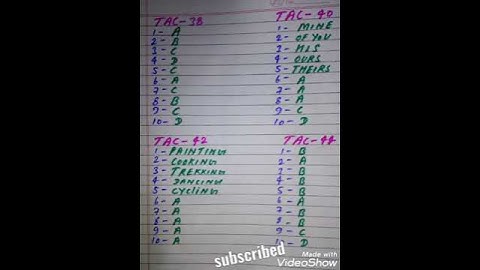 TAC-38
1- A
2- B
3- C
4- D
5- C
6- A
7- C
8- B
9- C
10- D
TAC-40
1- MINE
2- OF YOU
3- HIS
4- OURS
5- THEIRS
6- A
7- A
8- A
9- C
10- D
TAC-42
1- PAINTING
2- COOKING
3- TREKKING
4- DANCING
5- CYCLING
6- A
7- A
8- A
9- A
10- A
TAC-44
1- B
2- A
3- B
4- B
5- B
6- A
7- B
8- B
9- C
10- D
subscribed
Made with
VideoShow